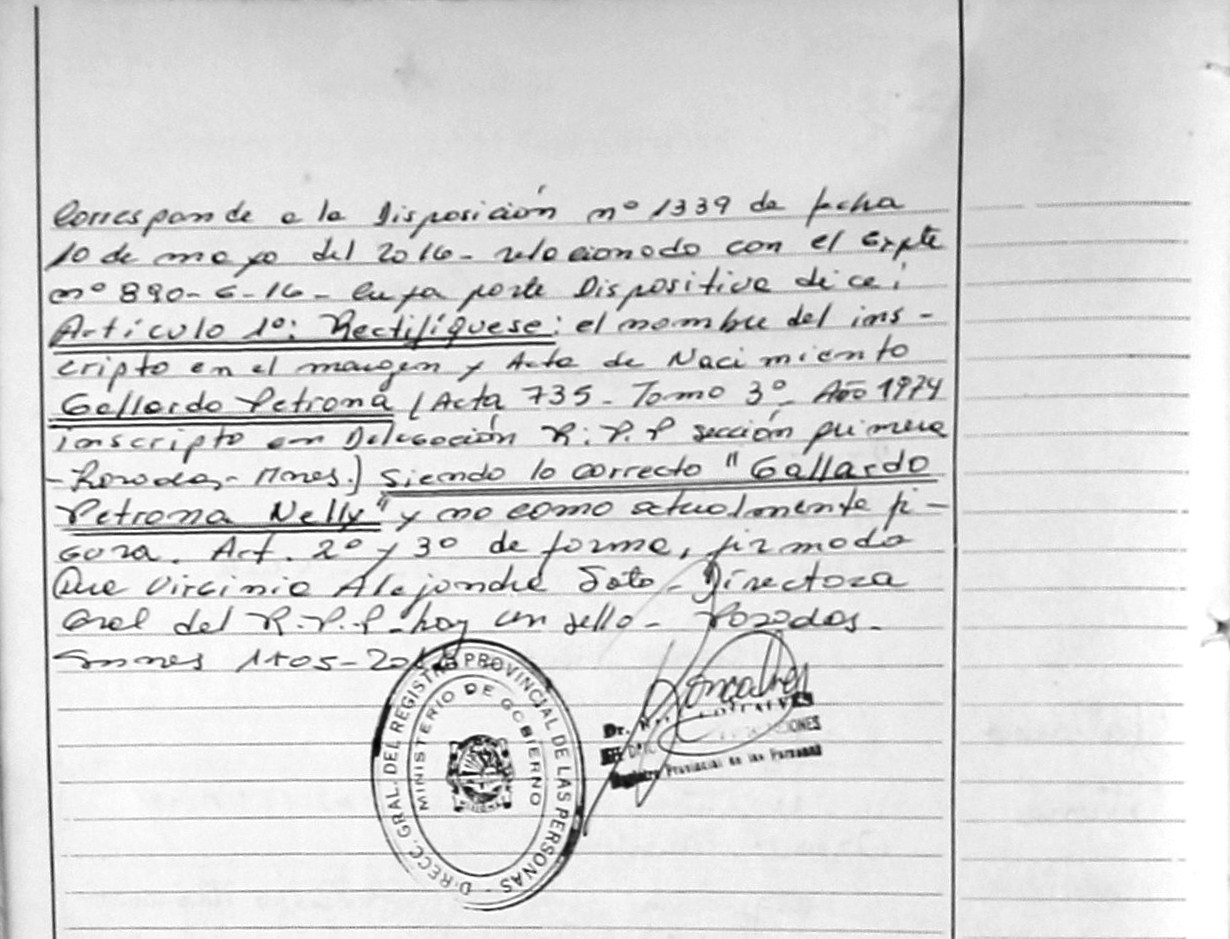 Corresponde a la Disposición nº 1339 de fecha
10 de mayo del 2016 - relacionado con el Expte
nº 890-G-16 - Cuya parte Dispositiva dice:
Artículo 1º: Rectifíquese: el nombre del ins-
cripto en el margen y Acta de Nacimiento
Gallardo Petrona (Acta 735 - Tomo 3º - Año 1974
inscripto en Delegación R.P.P sección primera
- Posadas - Mnes.) siendo lo correcto "Gallardo
Petrona Nelly" y no como actualmente fi-
gura. Art. 2º y 3º de forma, firmado
Dra Virginia Alejandra Soto - Directora
Gral del R.P.P - hay un sello - Posadas -
DIRECC. GRAL. DEL REGISTRO PROVINCIAL DE LAS PERSONAS
MINISTERIO DE GOBIERNO
Dr.
Registro Provincial de las Personas